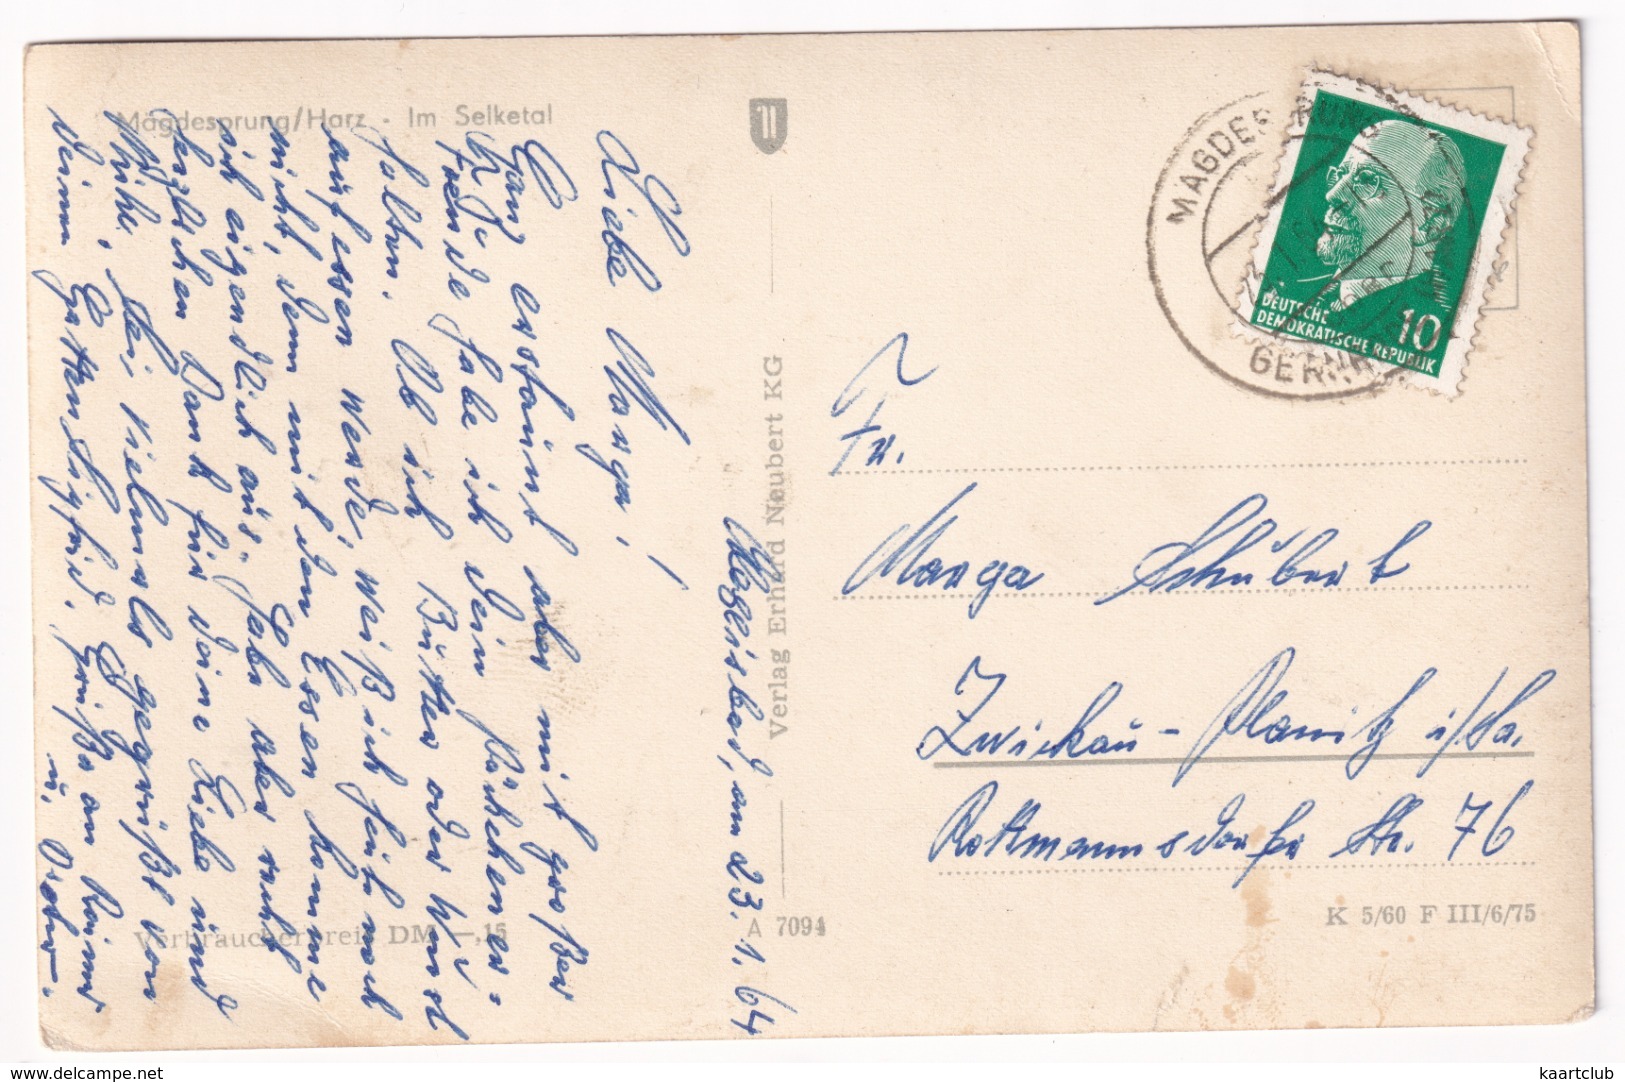 Mägdesprung/Harz · Im Selketal
Liebe Marga!
Ganz erstaunt aber mit großer
Freude habe ich Dein Päckchen er-
halten. Ob ich Butter oder Wurst
aufessen werde, weiß ich heute noch
nicht, denn mit dem Essen komme
ich eigentlich aus. Habe aber recht
herzlichen Dank für deine Liebe und
Mühe. Sei vielmals gegrüßt von
Deinem Gatten Sigfrid. Grüße an Rainer
u. Oster.
Verbraucherpreis DM —,15
Mägdeisbad, am 23.1.64
Verlag Erhard Neubert KG
A 7094
MÄGDESPRUNG
GERNR
DEUTSCHE
DEMOKRATISCHE REPUBLIK
10
Fr.
Marga Schubert
Zwickau-Planitz i/Sa.
Rottmannsdorfer Str. 76
K 5/60 F III/6/75
kaartclub
www.delcampe.net